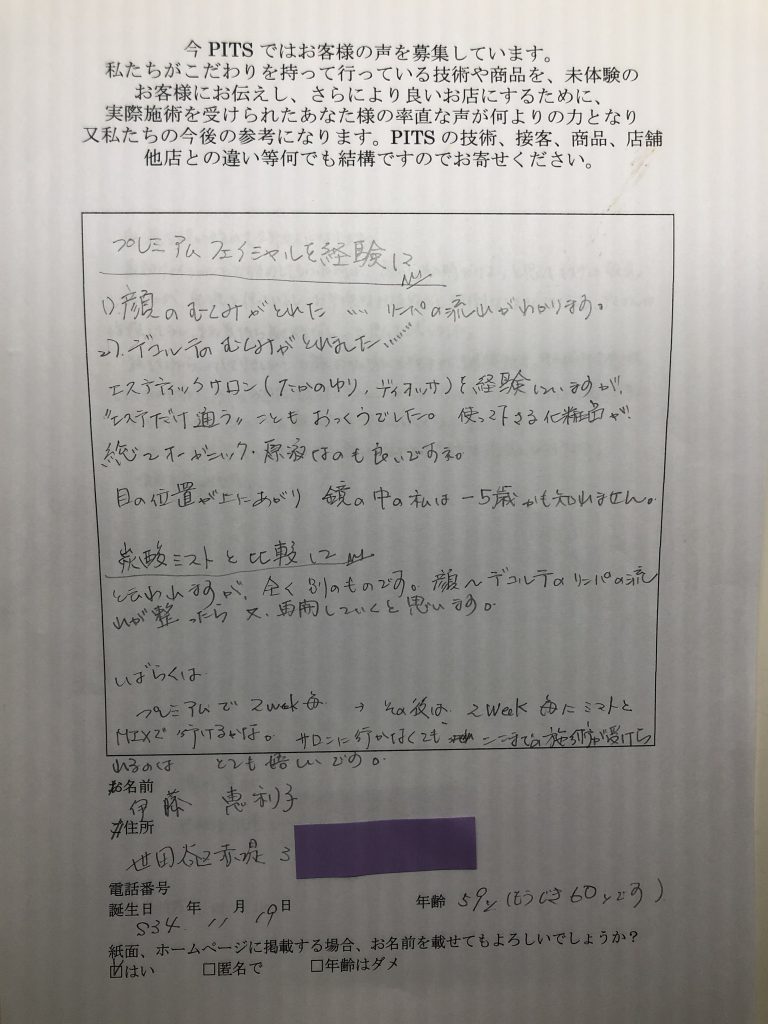 今 PITS ではお客様の声を募集しています。
私たちがこだわりを持って行っている技術や商品を、未体験の
お客様にお伝えし、さらにより良いお店にするために、
実際施術を受けられたあなた様の率直な声が何よりの力となり
又私たちの今後の参考になります。PITS の技術、接客、商品、店舗
他店との違い等何でも結構ですのでお寄せください。
プレミアムフェイシャルを経験して
1) 顔のむくみがとれた …… リンパの流れがわかります。
2). デコルテのむくみがとれました……
エステティックサロン(たかのゆり, ディオッサ)を経験していますが、
"エステだけ通う" こともおっくうでした。 使って下さる化粧品が
総てオーガニック・原液なのも良いですネ。
目の位置が上にあがり 鏡の中の私は -5歳かも知れません。
炭酸ミストと比較して
と云われますが、全く別のものです。顔〜デコルテのリンパの流
れが整ったら 又、再開していくと思います。
しばらくは
プレミアムで 2week毎 → その後は 2week 毎にミストと
MIXで行けるかな。 サロンに行かなくても ここまでの施術が受けら
れるのは とても嬉しいです。
お名前
伊藤 恵利子
ご住所
世田谷区赤堤 3
電話番号
誕生日 S34 年 11 月 19 日 年齢 59y (もうじき 60yです)
紙面、ホームページに掲載する場合、お名前を載せてもよろしいでしょうか？
☑はい □匿名で □年齢はダメ